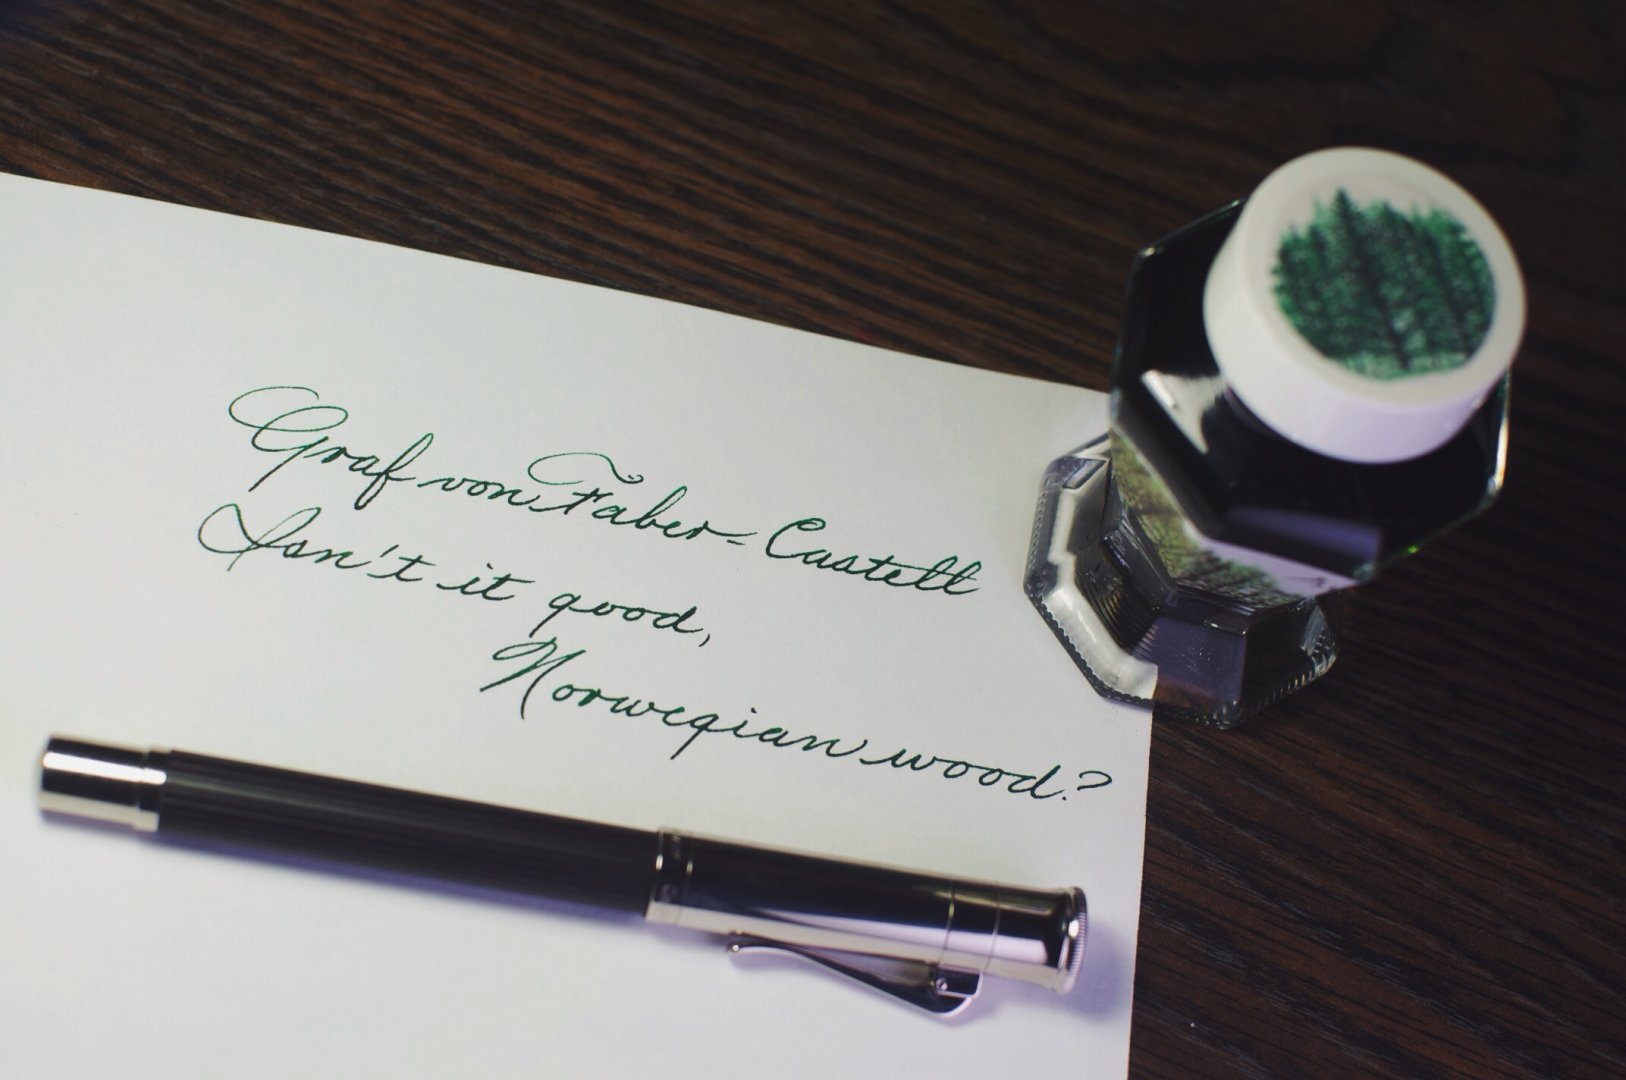 Graf von Faber-Castell
Isn't it good,
Norwegian wood?